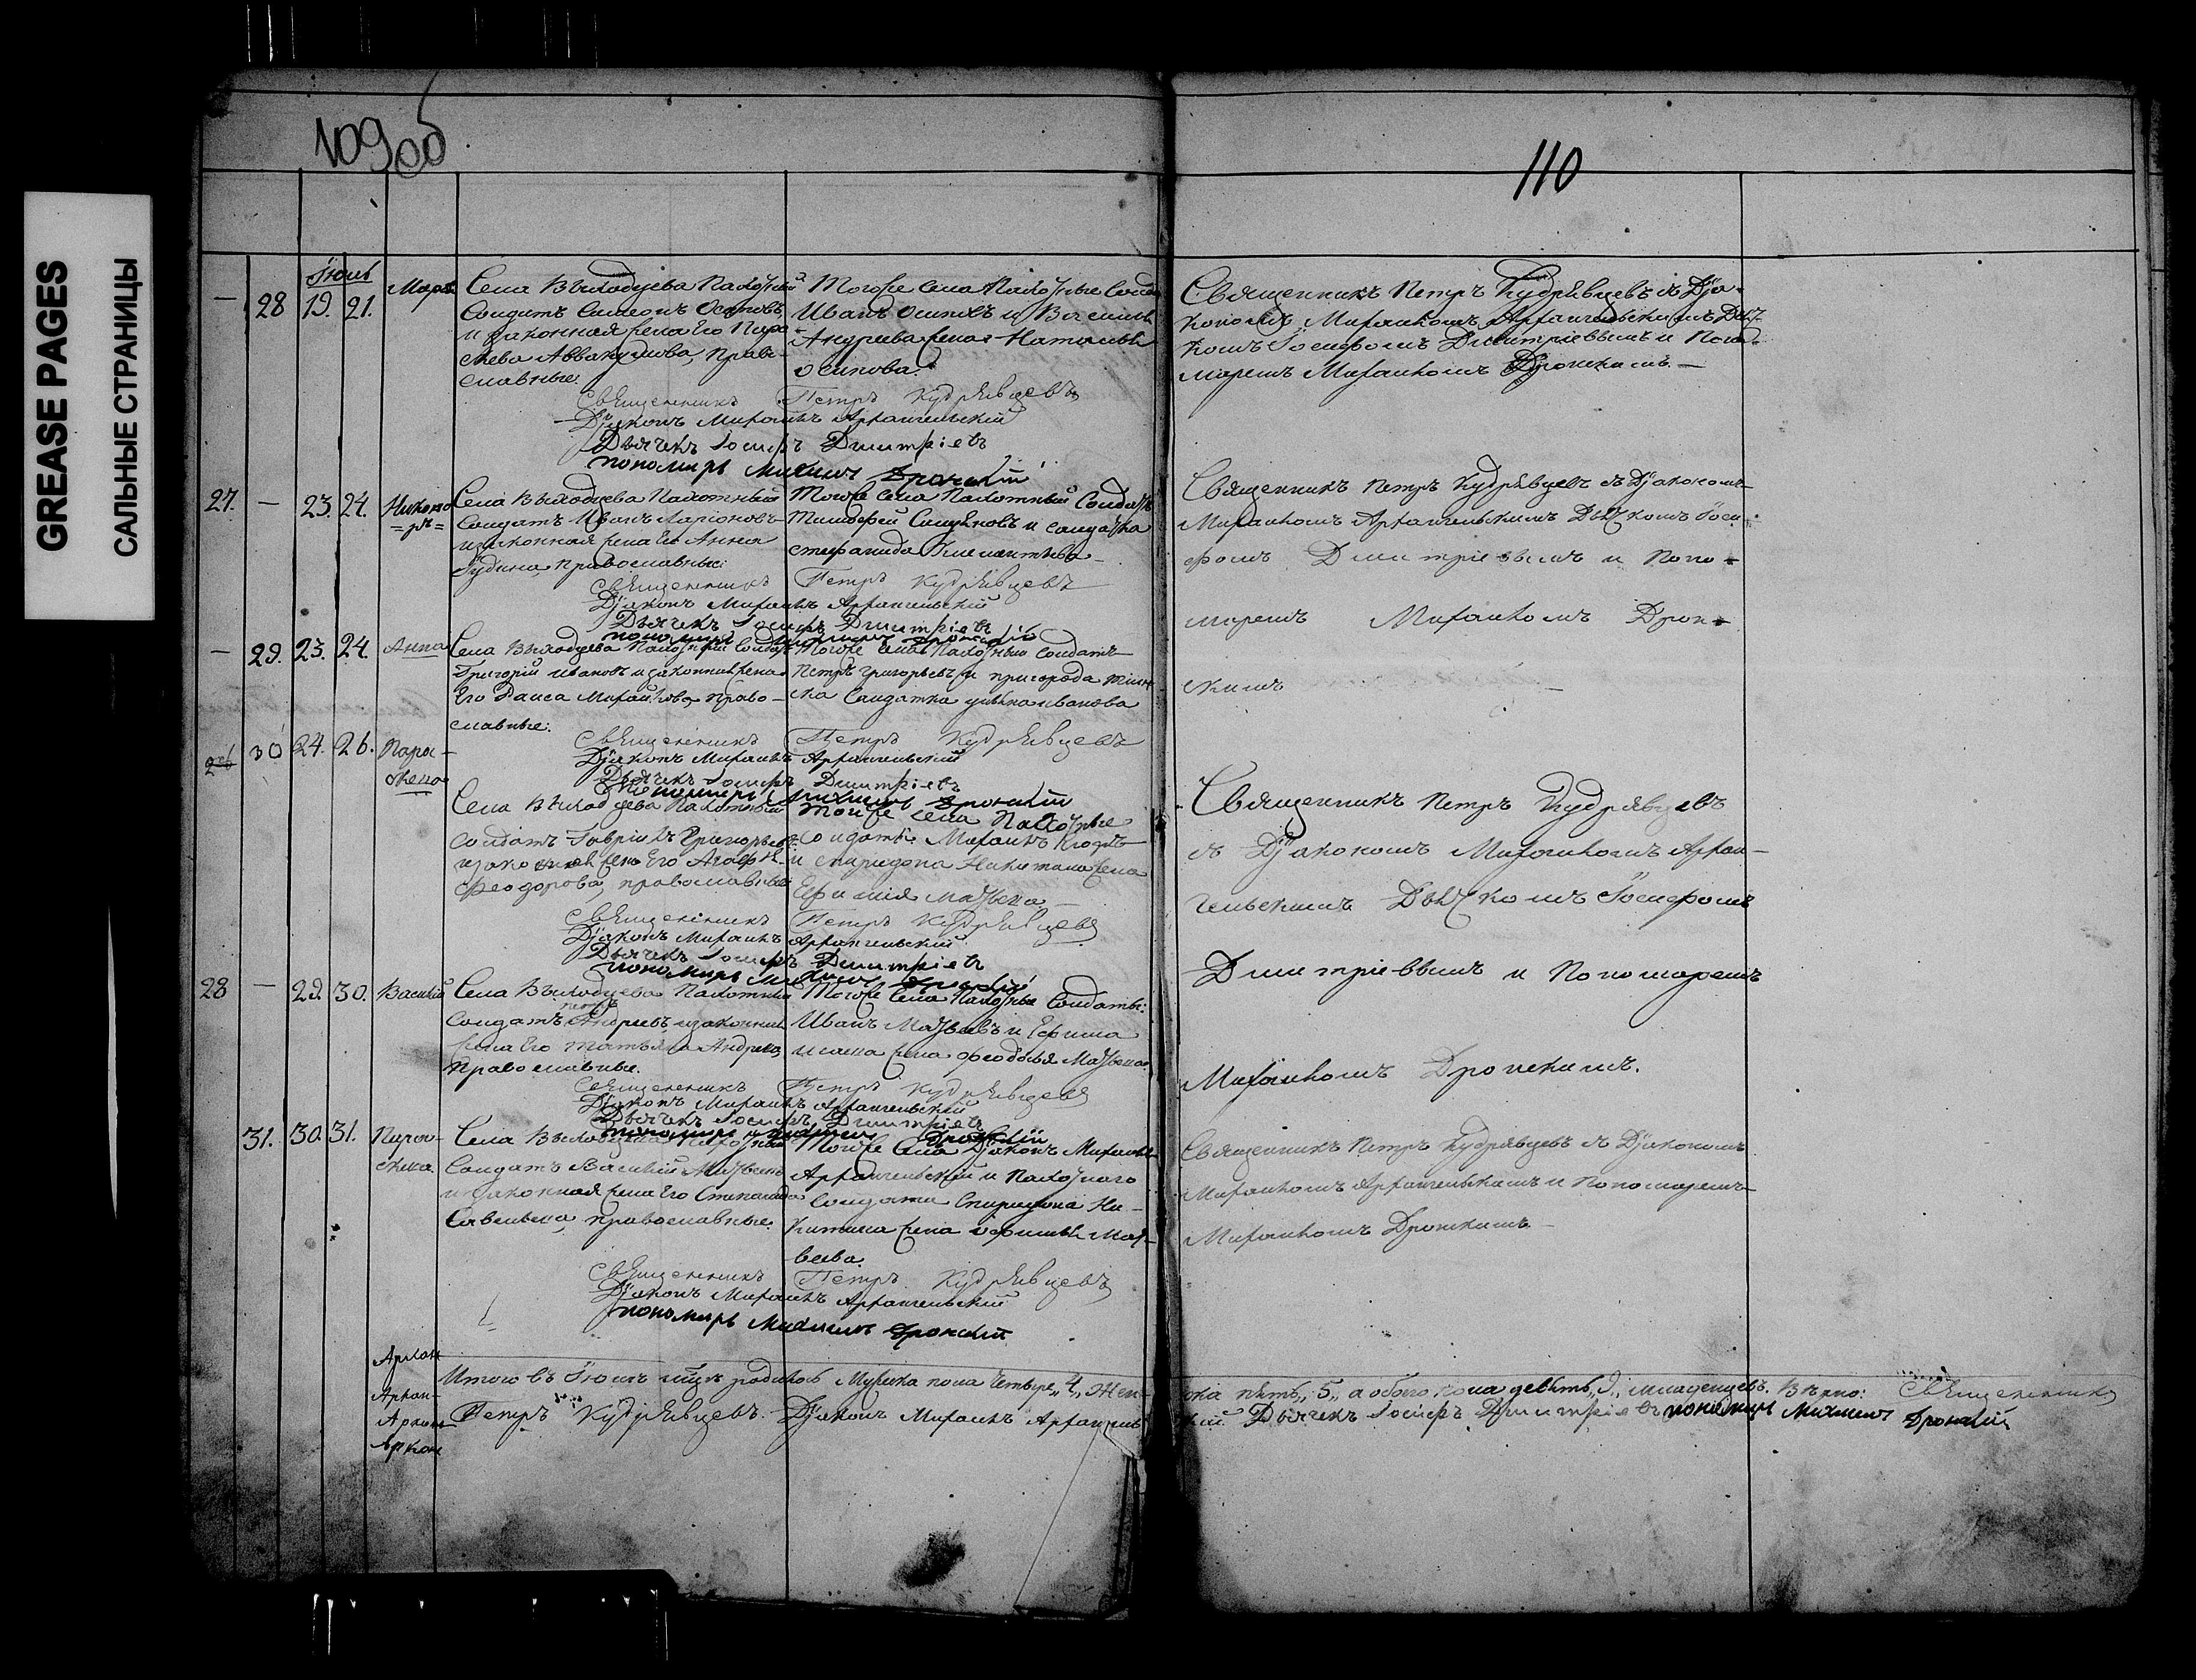 GREASE PAGES
САЛЬНЫЕ СТРАНИЦЫ
109 об
110
Іюль
— 28 19. 21.
Села Выходцева Пахотный
Солдатъ Симеонъ Осиповъ,
и законная жена Его Пара-
скева Аввакумова, право-
славные:
Тогоже села Пахотные
Иванъ Осиповъ и Василья
Андреева жена Наталья
Осипова.
Священникъ Петръ Кудрявцевъ съ Діа-
кономъ Михаиломъ Архангельскимъ Дьяч-
комъ Іосифомъ Димитріевымъ и Поно-
маремъ Михаиломъ Дронскимъ. —
Священникъ Петръ Кудрявцевъ
Діаконъ Михаилъ Архангельскій
Дьячекъ Іосифъ Димитріевъ
пономарь Михаилъ Дронскій
27. — 23. 24. Никано
=ръ=
Села Выходцева Пахотный
Солдатъ Иванъ Ларіоновъ
и законная жена Его Анна
Іудина, православные:
Тогоже села Пахотный Солдатъ
Тимофей и солдатка
Стефанида Климантьева
Священникъ Петръ Кудрявцевъ съ Діакономъ
Михаиломъ Архангельскимъ Дьячкомъ Іоси-
фомъ Димитріевымъ и Поно-
маремъ Михаиломъ Дрон-
скимъ —
Священникъ Петръ Кудрявцевъ
Діаконъ Михаилъ Архангельскій
Дьячекъ Іосифъ Димитріевъ
пономарь Михаилъ Дронскій
— 29. 23. 24. Анна
Села Выходцева Пахотный Солдатъ
Григорій Ивановъ и законная жена
Его Раиса Михайлова, право-
славные:
Тогоже села Пахотный Солдатъ
Петръ Григорьевъ и пригорода
Солдатка Ульяна Иванова
Священникъ Петръ Кудрявцевъ
Діаконъ Михаилъ Архангельскій
Дьячекъ Іосифъ Димитріевъ
Пономарь Михаилъ Дронскій
30 24. 26. Парас-
кева
Села Выходцева Пахотный
солдатъ Гавріилъ Григорьевъ
и законная жена Его
Феодорова, православные
Тогоже села Пахотные
солдаты Михаилъ
и Спиридона Никитина жена
Ефимія Матвеева —
Священникъ Петръ Кудрявцевъ
съ Діакономъ Михаиломъ Архан-
гельскимъ Дьячкомъ Іосифомъ
Димитріевымъ и Пономаремъ
Михаиломъ Дронскимъ.
Священникъ Петръ Кудрявцевъ
Діаконъ Михаилъ Архангельскій
Дьячекъ Іосифъ Димитріевъ
пономарь Михаилъ Дронскій
28 — 29. 30. Василій
Села Выходцева Пахотный
солдатъ Андреевъ и законная
жена Его Татьяна Андреева
Православные.
Тогоже села Пахотные Солдаты:
Иванъ Матвеевъ и Ефима
жена Феодосья Матвеева
Священникъ Петръ Кудрявцевъ
Діаконъ Михаилъ Архангельскій
Дьячекъ Іосифъ Димитріевъ
пономарь Михаилъ Дронскій
31. 30. 31. Парас-
кева
Села Выходцева Пахотный
Солдатъ Василій Матвеевъ
и законная жена Его Степанида
Савельева, православные.
Тогоже села Діаконъ Михаилъ
Архангельскій и Пахотного
Солдата Спиридона Ни-
китина жена Ефимья Мат-
веева.
Священникъ Петръ Кудрявцевъ съ Діакономъ
Михаиломъ Архангельскимъ и Пономаремъ
Михаиломъ Дронскимъ —
Священникъ Петръ Кудрявцевъ
Діаконъ Михаилъ Архангельскій
пономарь Михаилъ Дронскій
Архан
Архан-
Архан
Архан
Итого въ Іюль мцѣ родилось Мужска пола четыре „4„ Жен-
ска пять „5„ а обоего пола девять „9„ младенцевъ. Вѣрно: Священникъ
Петръ Кудрявцевъ. Діаконъ Михаилъ Архангель-
скій Дьячекъ Іосифъ Димитріевъ пономарь Михаилъ Дронскій